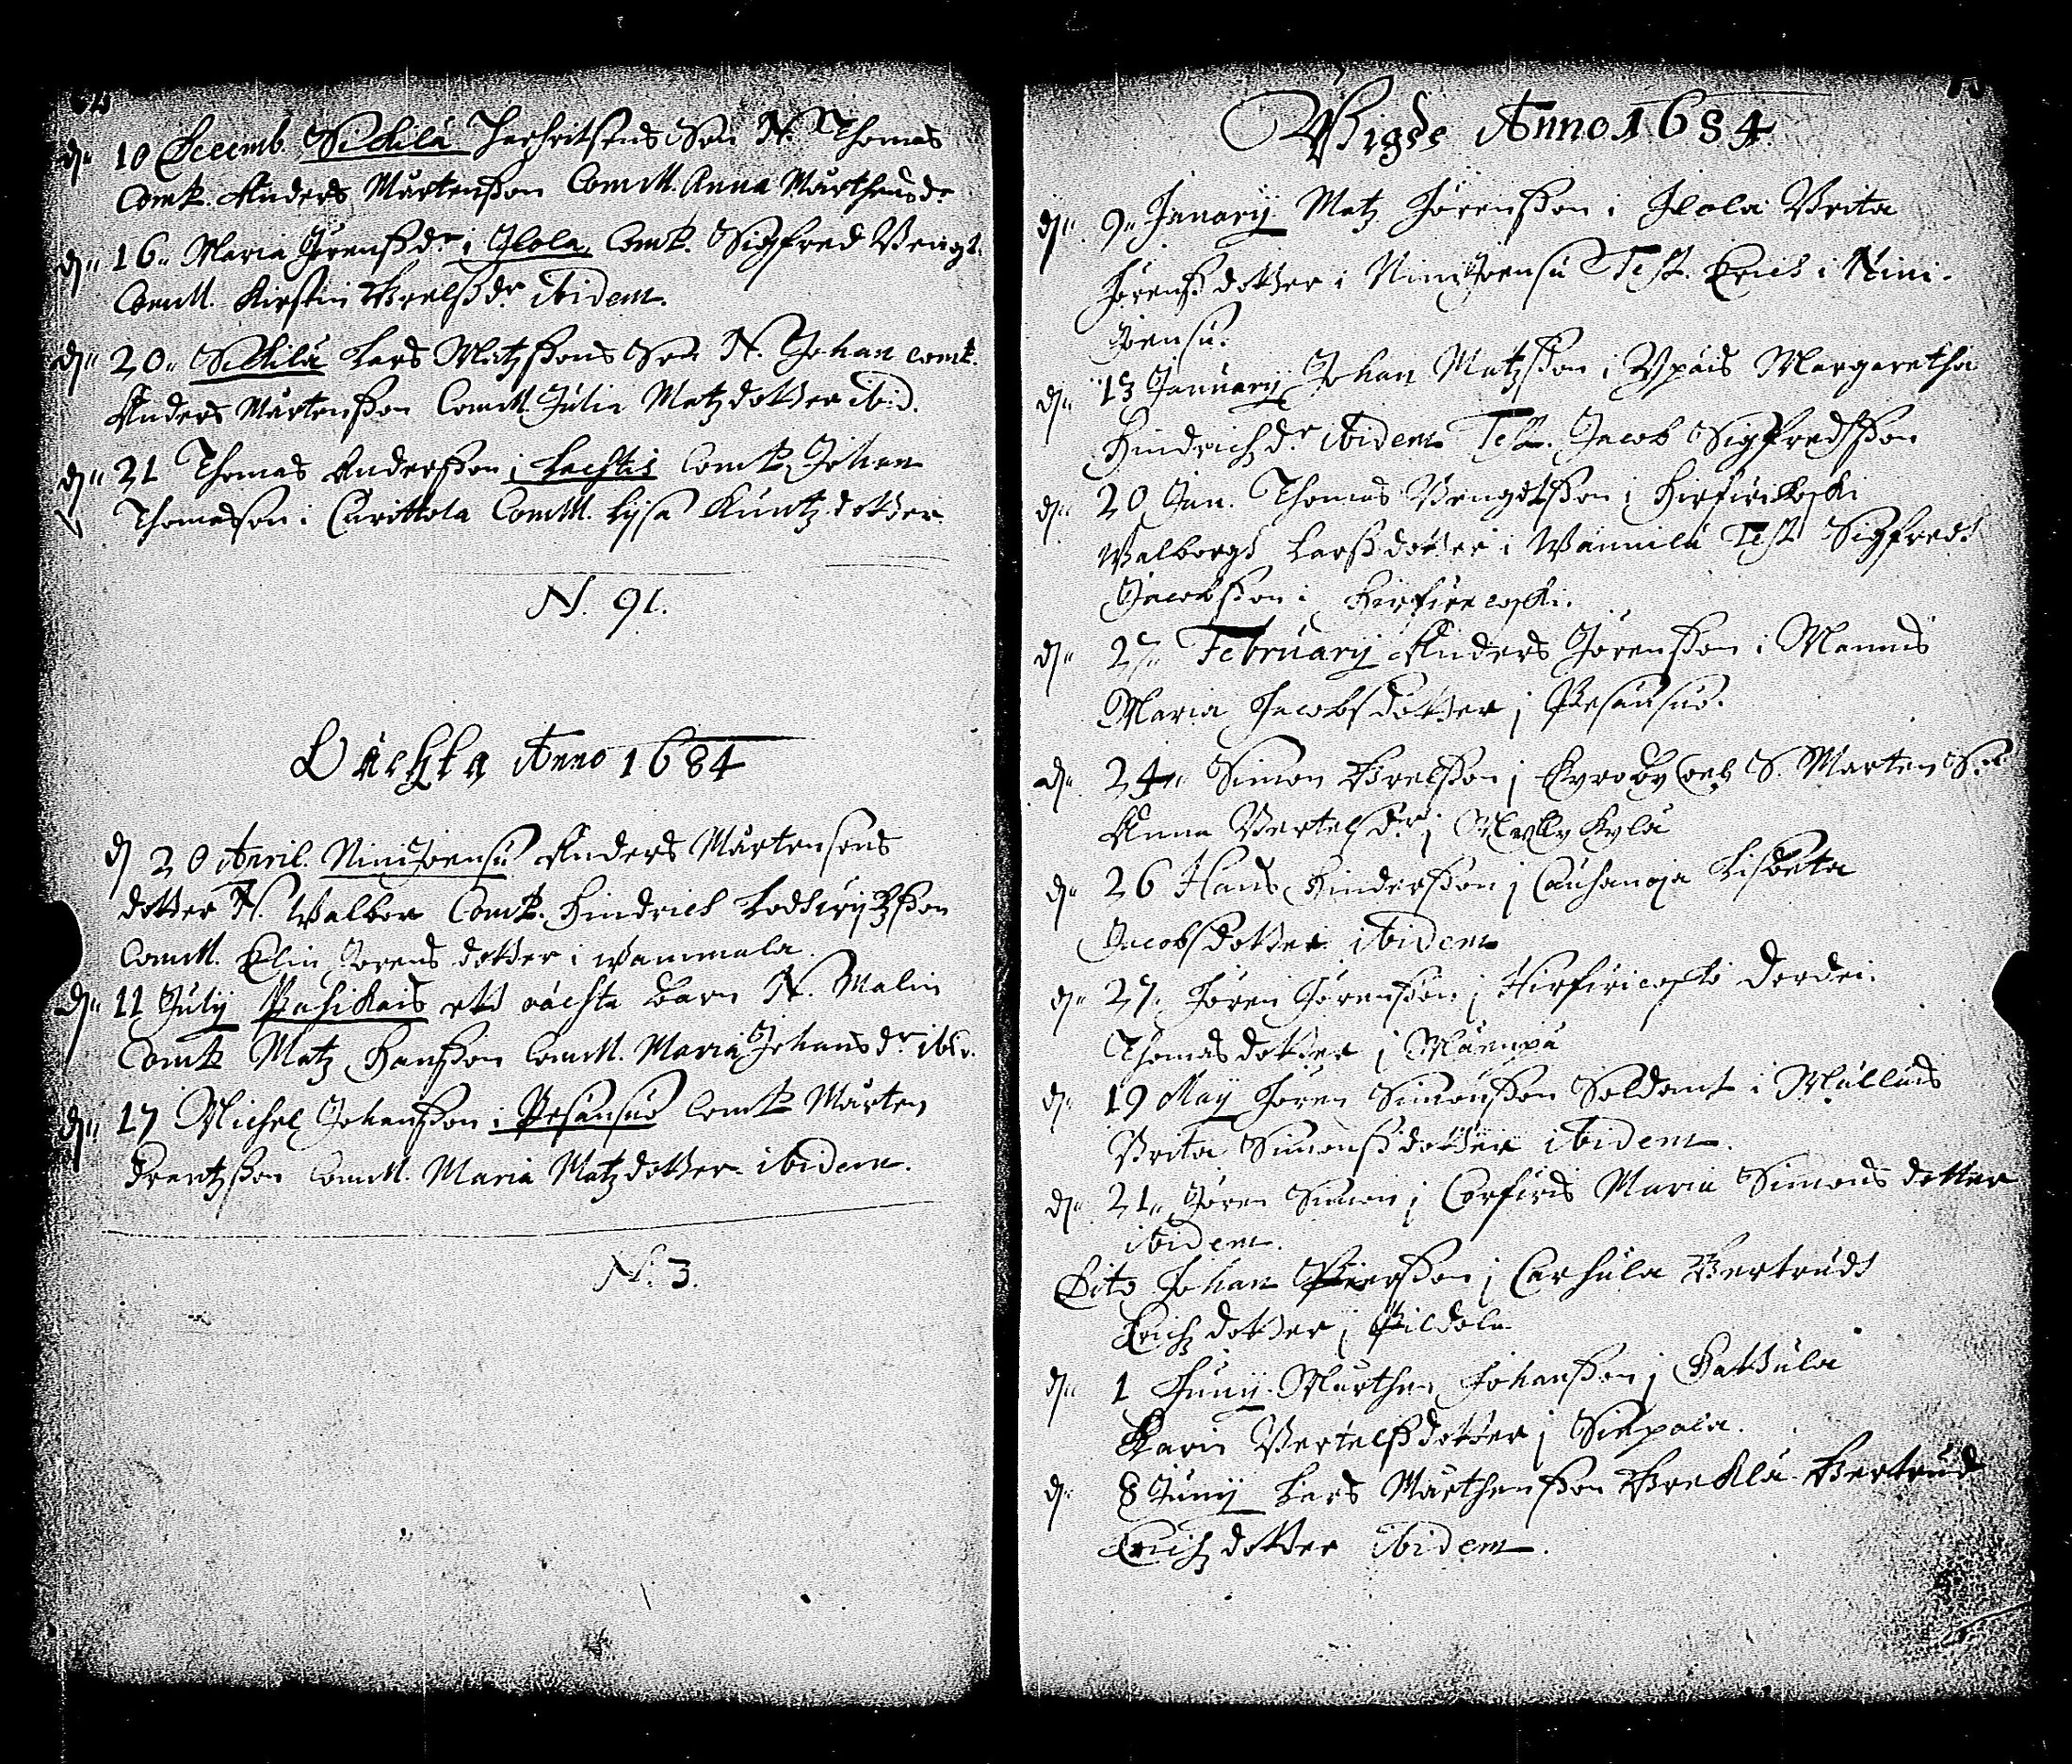 d. 10 Decemb. Sickilä Herr Son N. Thomas
Comp. Anders Mårtensson ComM. Anna Mårthensdr
d. 16. Maria Jörenssdr i Ilola Comp. Sigfred Bengt.
ComM. Kirstin Grelssdr ibidem.
d. 20. Sickilä Lars Matzssons Son N. Johan Comp.
Anders Mårtensson ComM. Julin Matzdotter ibid.
d. 21 Thomas Andersson i Lachtis Comp. Johan
Thomasson i Carittola ComM. Lysa Kuntzdotter
N. 91.
Oächta Anno 1684
d 20 April. Ninijoensu Anders Mårtensons
dotter N. Walbor Comp. Hindrich Lodhwijksson
ComM. Elin Jörensdotter i Wammala
d. 11 Julij Pusikais ett oächta barn N. Malin
Comp Matz Hansson ComM. Maria Johansdr ibid.
d. 17 Michel Johansson i Pesänsuo Comp Mårten
Drentzsson ComM. Maria Matzdotter ibidem.
N. 3.
Wigde Anno 1684.
d. 9. Januarij Matz Jörensson i Ilola Brita
Jörenssdotter i Ninijoensu Test. Erich i Nini-
joensu.
d. 13 Januarij Johan Matzsson i Ypäis Margaretha
Hindrichzdr ibidem Test. Jacob Sigfredsson
d. 20 Jan. Thomas Bengdtsson i Hirfwikoski
Walborgh Larssdotter i Wännilä Test Sigfredh
Jacobsson i
d. 27. Februarij Anders Jörensson i Mannis
Maria Jacobsdotter i Pesänsuo.
d. 24. Simon Grelsson i S. Mårten
Anna Bertelsdr i Mylly Kylä
d. 26 Hans Hindersson i Cauhanoja Lisbeta
Jacobsdotter ibidem
d. 27. Jören Jörensson i Hirfwicoski Dordei
Thomasdotter i Mäenpä
d. 19 Maij Jören Simonsson Soldat i Mälläis
Brita Simonssdotter ibidem.
d. 21. Jören Simon i Corfwis Maria Simonsdotter
ibidem.
Dito Johan i Carhula Gertrudh
Erichzdotter i Pildola
d. 1 Junij Mårthen Johansson i Hattula
Karin Bertelssdotter i Siepala.
d. 8 Junij Lars Mårthensson Greklä Gertrud
Erichzdotter ibidem.